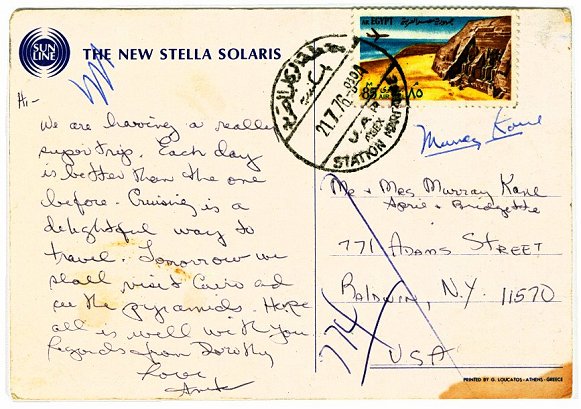 SUN
LINE
THE NEW STELLA SOLARIS
Hi-
We are having a really
super trip. Each day
is better than the one
before. Cruising is a
delightful way to
travel. Tomorrow we
shall visit Cairo and
see the pyramids. Hope
all is well with you
Regards from Dorothy
Love
A.R. EGYPT
85
AIR
٨٥
21.7.76
U.A.R
STATION MARITIME
Murray Kane
Mr + Mrs Murray Kane
April + Bridgette
771 ADAMS STREET
BALDWIN, N.Y. 11570
USA
774
PRINTED BY G. LOUCATOS - ATHENS - GREECE